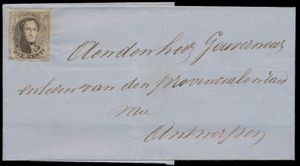 Aen den heer Gouverneur
en leden van den provincialen raad
van
Antwerpen